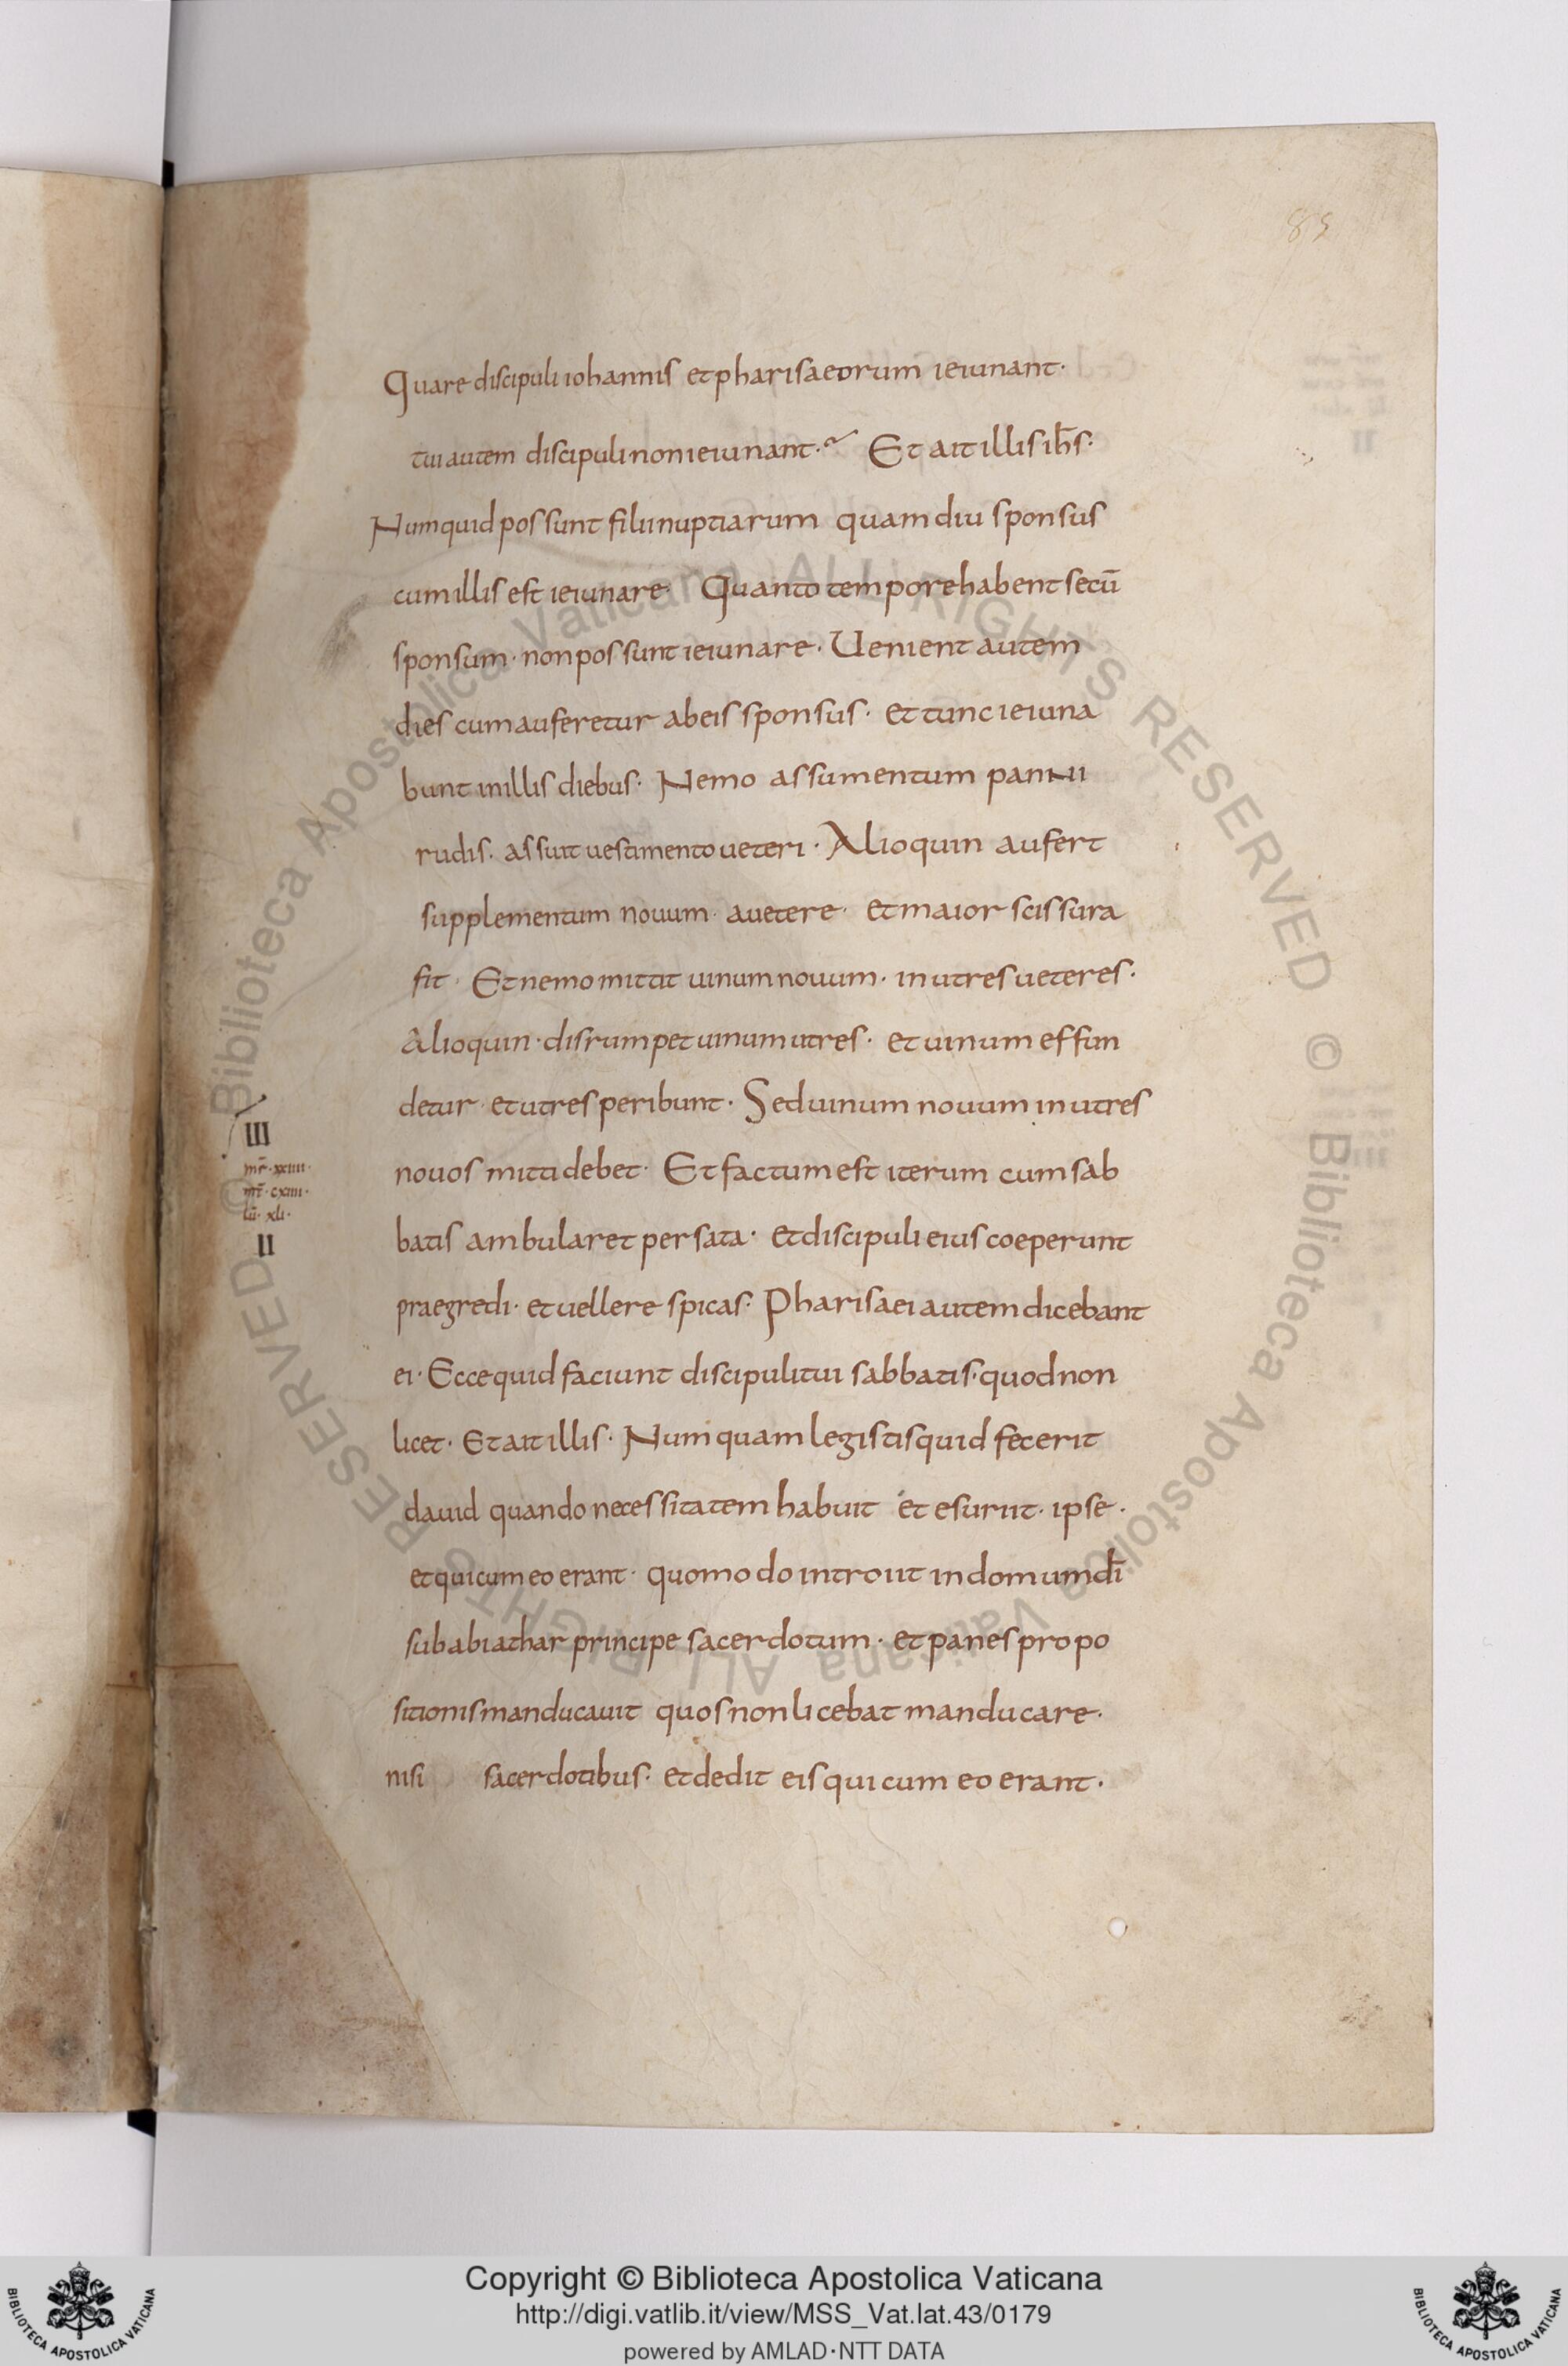 85
Quare discipuli iohannis et pharisaeorum ieiunant·
tui autem discipuli non ieiunant· Et ait illis ih̅s·
Numquid possunt filii nuptiarum quam diu sponsus
cum illis est ieiunare Quanto tempore habent secū
sponsum· non possunt ieiunare· Uenient autem
dies cum auferetur ab eis sponsus· et tunc ieiuna
bunt in illis diebus· Nemo assumentum pannii
rudis· assuit uestimento ueteri· Alioquin aufert
supplementum nouum· a uetere· et maior scissura
fit· Et nemo mittit uinum nouum· in utres ueteres·
Alioquin· disrumpet uinum utres· et uinum effun
detur· et utres peribunt· Sed uinum nouum in utres
III
mr̄· xxiiii·
mt̄· cxiiii·
lū· xli·
II
nouos mitti debet· Et factum est iterum cum sab
batis ambularet per sata· et discipuli eius coeperunt
praegredi· et uellere spicas· Pharisaei autem dicebant
ei· Ecce quid faciunt discipuli tui sabbatis· quod non
licet· Et ait illis· Numquam legistis quid fecerit
dauid quando necessitatem habuit et esuriit· ipse·
et qui cum eo erant· quomodo introiit in domum dī
sub abiathar principe sacerdotum· et panes propo
sitionis manducauit quos non licebat manducare·
nisi sacerdotibus· et dedit eis qui cum eo erant·
© Biblioteca Apostolica Vaticana ALL RIGHTS RESERVED
© Biblioteca Apostolica Vaticana ALL RIGHTS RESERVED
Copyright © Biblioteca Apostolica Vaticana
http://digi.vatlib.it/view/MSS_Vat.lat.43/0179
powered by AMLAD·NTT DATA
BIBLIOTECA APOSTOLICA VATICANA
BIBLIOTECA APOSTOLICA VATICANA